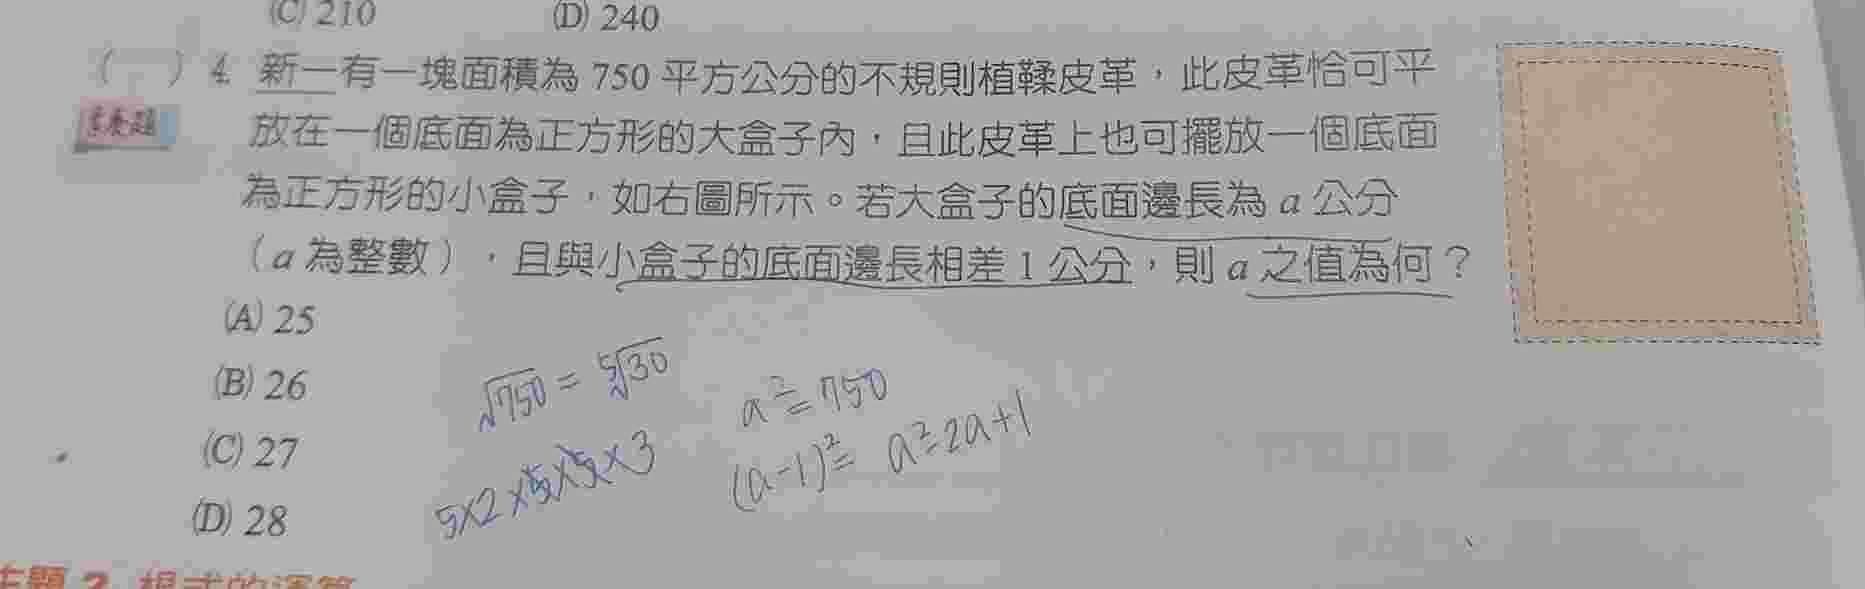 (C) 210 (D) 240
( ) 4. 新一有一塊面積為 750 平方公分的不規則植鞣皮革，此皮革恰可平
放在一個底面為正方形的大盒子內，且此皮革上也可擺放一個底面
為正方形的小盒子，如右圖所示。若大盒子的底面邊長為 a 公分
（a 為整數），且與小盒子的底面邊長相差 1 公分，則 a 之值為何？
(A) 25
(B) 26
(C) 27
(D) 28
√750 = 5√30
5×2×5×5×3
a²=750
(a-1)²= a²-2a+1
主題 2 根式的運算